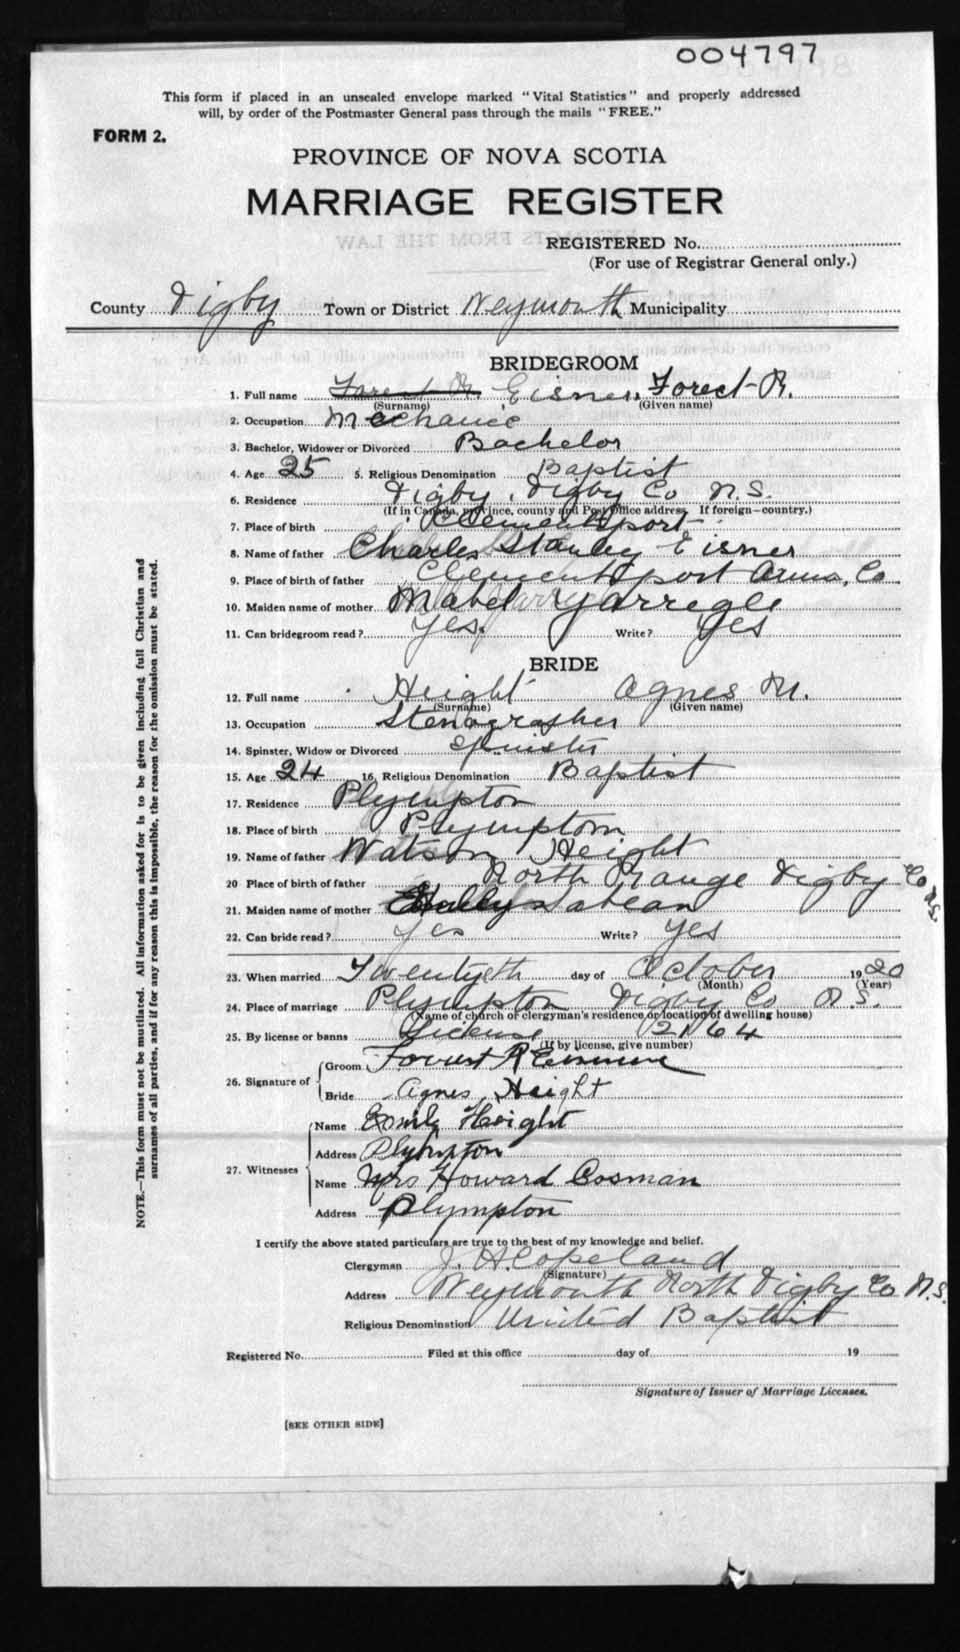 004797
This form if placed in an unsealed envelope marked "Vital Statistics" and properly addressed
will, by order of the Postmaster General pass through the mails "FREE."
FORM 2.
PROVINCE OF NOVA SCOTIA
MARRIAGE REGISTER
REGISTERED No.
(For use of Registrar General only.)
County Digby Town or District Weymouth Municipality
BRIDEGROOM
1. Full name Forest R. Eisner, Forest R.
(Surname) (Given name)
2. Occupation Mechanic
3. Bachelor, Widower or Divorced Bachelor
4. Age 25 5. Religious Denomination Baptist
6. Residence Digby, Digby Co N.S.
(If in Canada, province, county and Post Office address. If foreign—country.)
7. Place of birth Clementsport
8. Name of father Charles Stanley Eisner
9. Place of birth of father Clementsport Anna. Co
10. Maiden name of mother Mabel
11. Can bridegroom read? Yes. Write? Yes
BRIDE
12. Full name Height Agnes M.
(Surname) (Given name)
13. Occupation Stenographer
14. Spinster, Widow or Divorced Spinster
15. Age 24 16. Religious Denomination Baptist
17. Residence Plympton
18. Place of birth Plympton
19. Name of father Watson Height
20 Place of birth of father North Range Digby Co N.S.
21. Maiden name of mother Sabean
22. Can bride read? Yes Write? Yes
23. When married Twentyeth day of October 1920
(Month) (Year)
24. Place of marriage Plympton Digby Co N.S.
(Name of church or clergyman's residence or location of dwelling house)
25. By license or banns License 2164
(If by license, give number)
26. Signature of
Groom Forrest R
Bride Agnes Height
27. Witnesses
Name Emily Height
Address Plympton
Name Mrs Howard Cosman
Address Plympton
I certify the above stated particulars are true to the best of my knowledge and belief.
Clergyman J. H. Copeland
(Signature)
Address Weymouth North Digby Co N.S.
Religious Denomination United Baptist
Registered No. Filed at this office day of 19
Signature of Issuer of Marriage Licenses.
[SEE OTHER SIDE]
NOTE.—This form must not be mutilated. All information asked for is to be given including full Christian and
surnames of all parties, and if for any reason this is impossible, the reason for the omission must be stated.